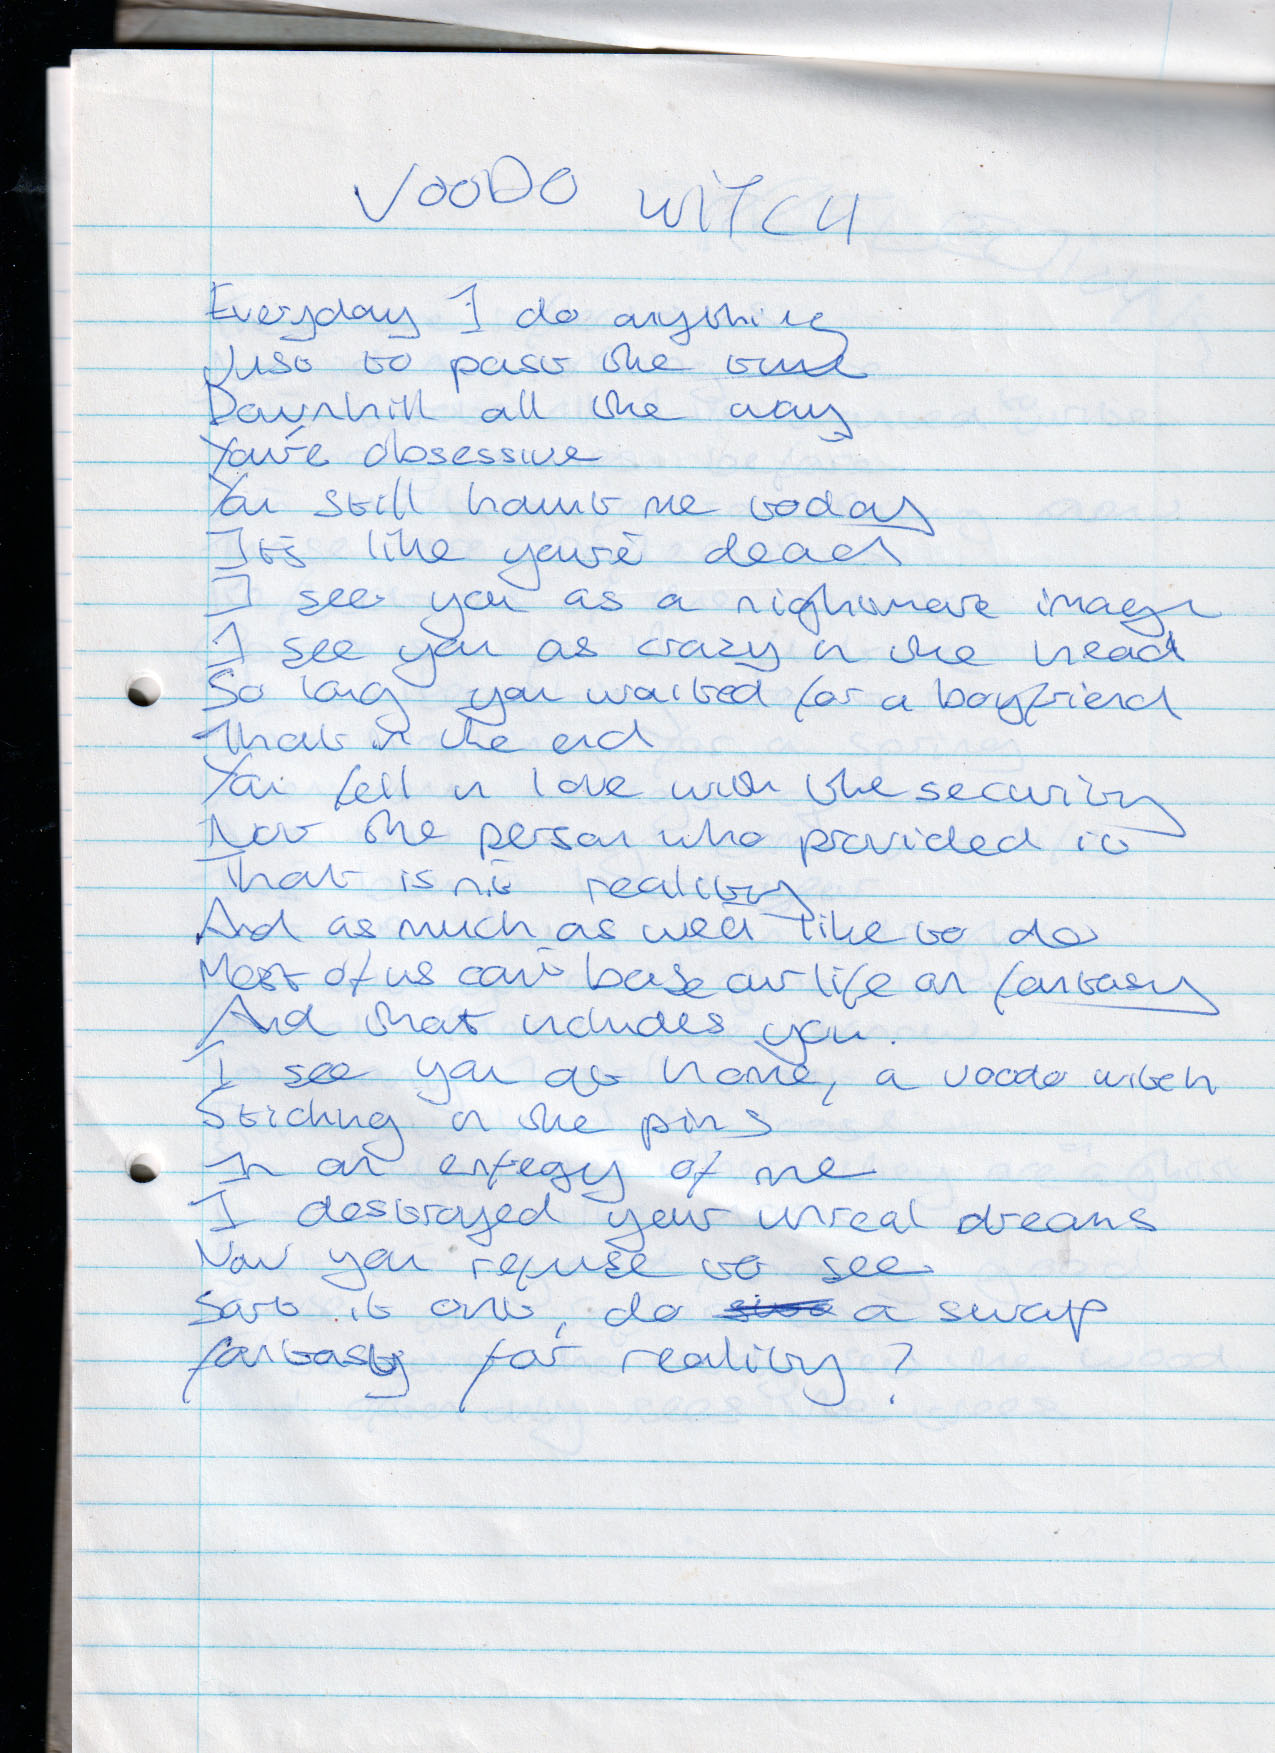 VOODO WITCH
Everyday I do anything
Just to past the time
Downhill all the way
You're obsessive
You still haunt me today
It's like you're dead
I see you as a nightmare image
I see you as crazy in the head
So long you waited for a boyfriend
That in the end
You fell in love with the security
Not the person who provided it
That isn't reality
And as much as we'd like to do
Most of us can't base our life on fantasy
And that includes you.
I see you at home, a voodo witch
Sticking in the pins
In an effegy of me
I destroyed your unreal dreams
Now you refuse to see
Sort it out, do a swap
fantasy for reality?